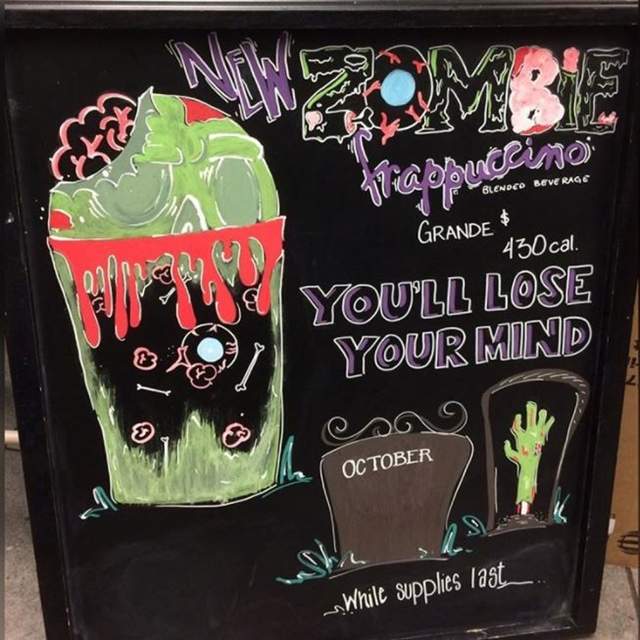 NEW ZOMBiE
frappuccino
BLENDED BEVERAGE
GRANDE $
430 cal.
YOU'LL LOSE
YOUR MIND
OCTOBER
While supplies last